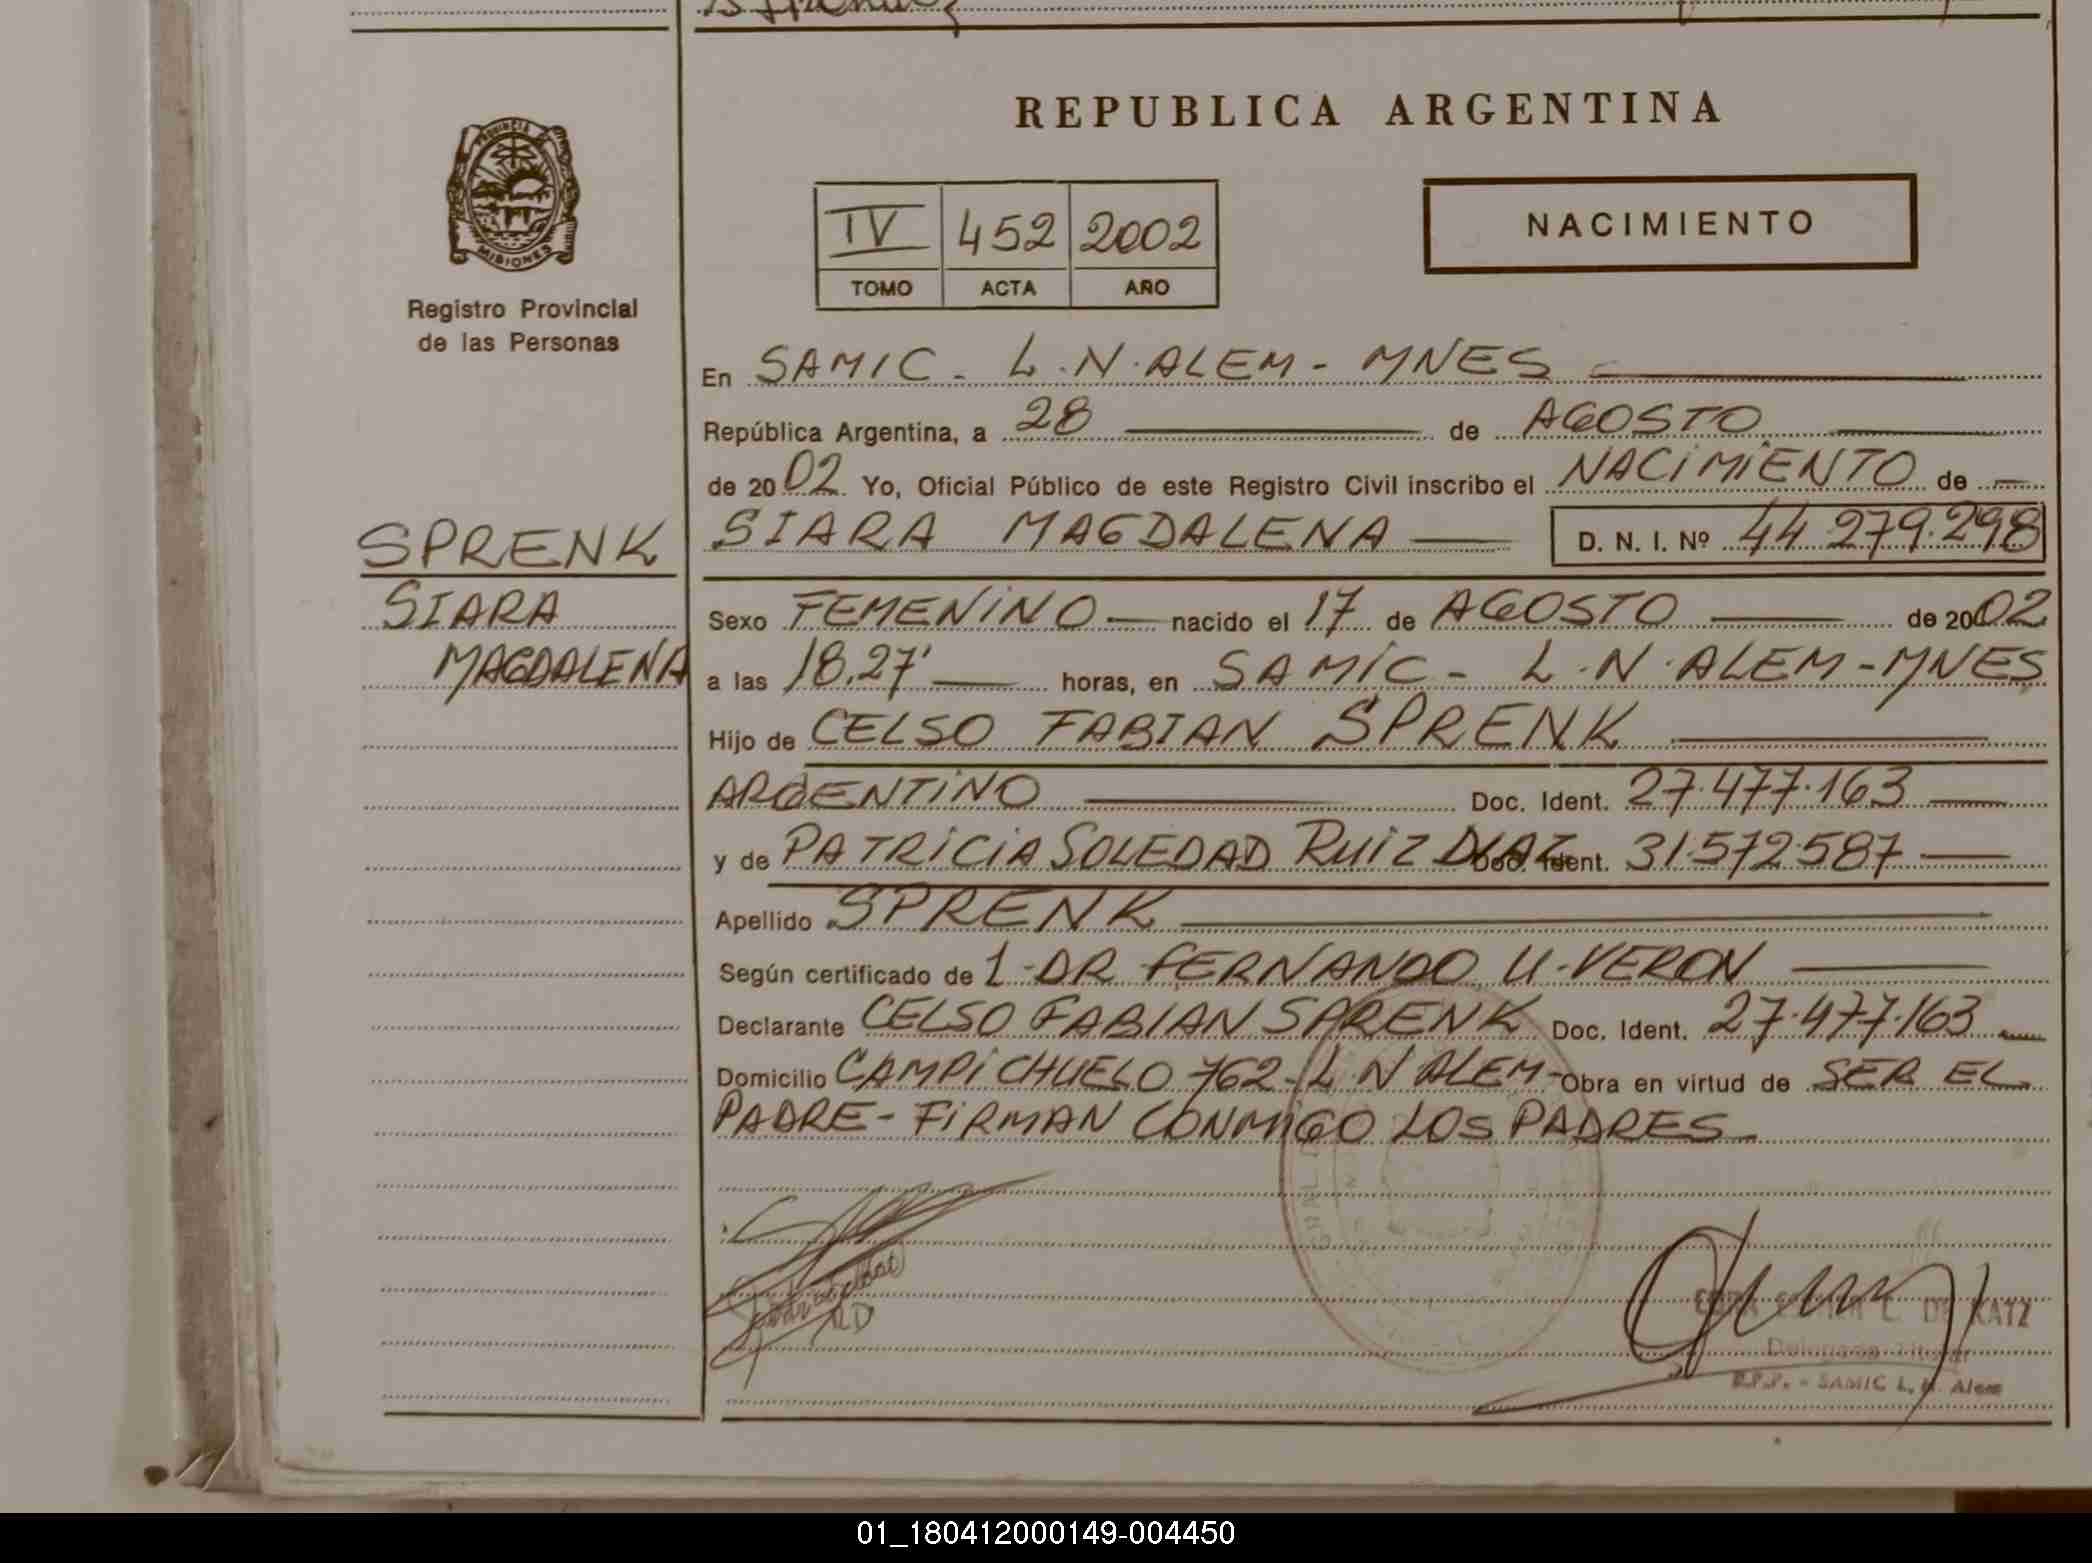 REPUBLICA ARGENTINA
PROVINCIA DE
MISIONES
Registro Provincial
de las Personas
NACIMIENTO
IV 452 2002
TOMO ACTA AÑO
En SAMIC - L.N. ALEM - MNES
República Argentina, a 28 de AGOSTO
de 2002 Yo, Oficial Público de este Registro Civil inscribo el NACIMIENTO de
SIARA MAGDALENA D. N. I. Nº 44.279.298
SPRENK
SIARA
MAGDALENA
Sexo FEMENINO nacido el 17 de AGOSTO de 2002
a las 18,27' horas, en SAMIC - L.N. ALEM - MNES
Hijo de CELSO FABIAN SPRENK
ARGENTINO Doc. Ident. 27.477.163
y de PATRICIA SOLEDAD RUIZ DIAZ Doc. Ident. 31.572.587
Apellido SPRENK
Según certificado de 1-DR FERNANDO U-VERON
Declarante CELSO FABIAN SPRENK Doc. Ident. 27.477.163
Domicilio CAMPICHUELO 762 - L N ALEM - Obra en virtud de SER EL
PADRE - FIRMAN CONMIGO LOS PADRES
DE KATZ
Delegada Titular
R.P.P. - SAMIC L. N. Alem
01_180412000149-004450